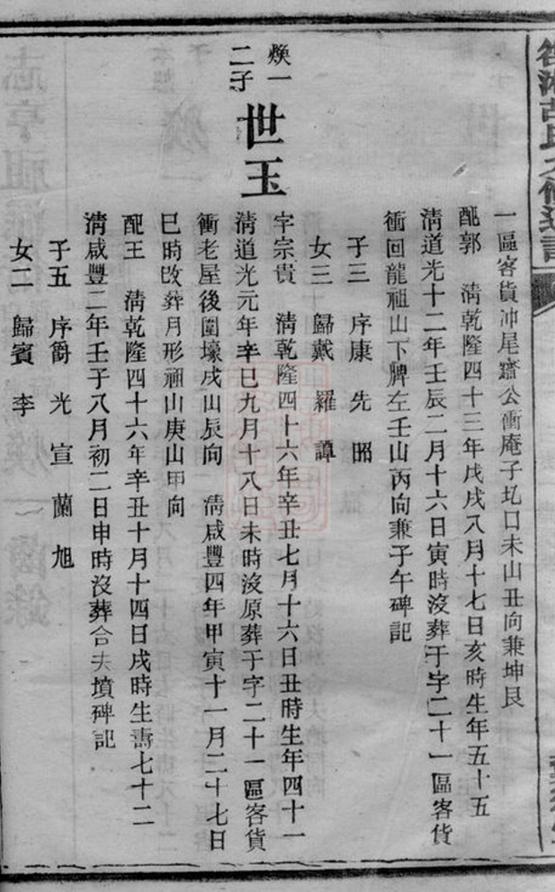 一區客貨冲尾齋公衝庵子圠口未山丑向兼坤艮
配郭 清乾隆四十三年戊戌八月十七日亥時生年五十五
清道光十二年壬辰二月十六日寅時沒葬于字二十一區客貨
衝回龍祖山下脾左壬山丙向兼子午碑記
子三 序康 先 昭
女三 歸戴 羅 譚
煥一
二子
世玉
字宗貴 清乾隆四十六年辛丑七月十六日丑時生年四十一
清道光元年辛巳九月十八日未時沒原葬于字二十一區客貨
衝老屋後圍壕戌山辰向 清咸豐四年甲寅十一月二十七日
巳時改葬月形祖山庚山甲向
配王 清乾隆四十六年辛丑十月十四日戌時生壽七十二
清咸豐二年壬子八月初二日申時沒葬合夫墳碑記
子五 序爵 光 宣 蘭 旭
女二 歸賓 李